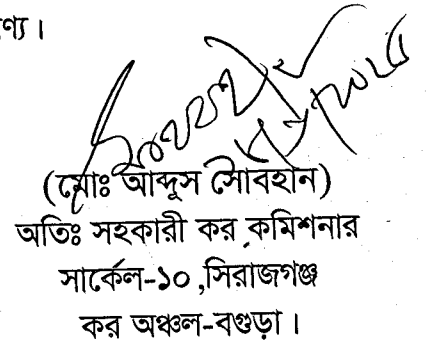 ণ্যে।
(মোঃ আব্দুস সোবহান)
অতিঃ সহকারী কর কমিশনার
সার্কেল-১০,সিরাজগঞ্জ
কর অঞ্চল-বগুড়া।